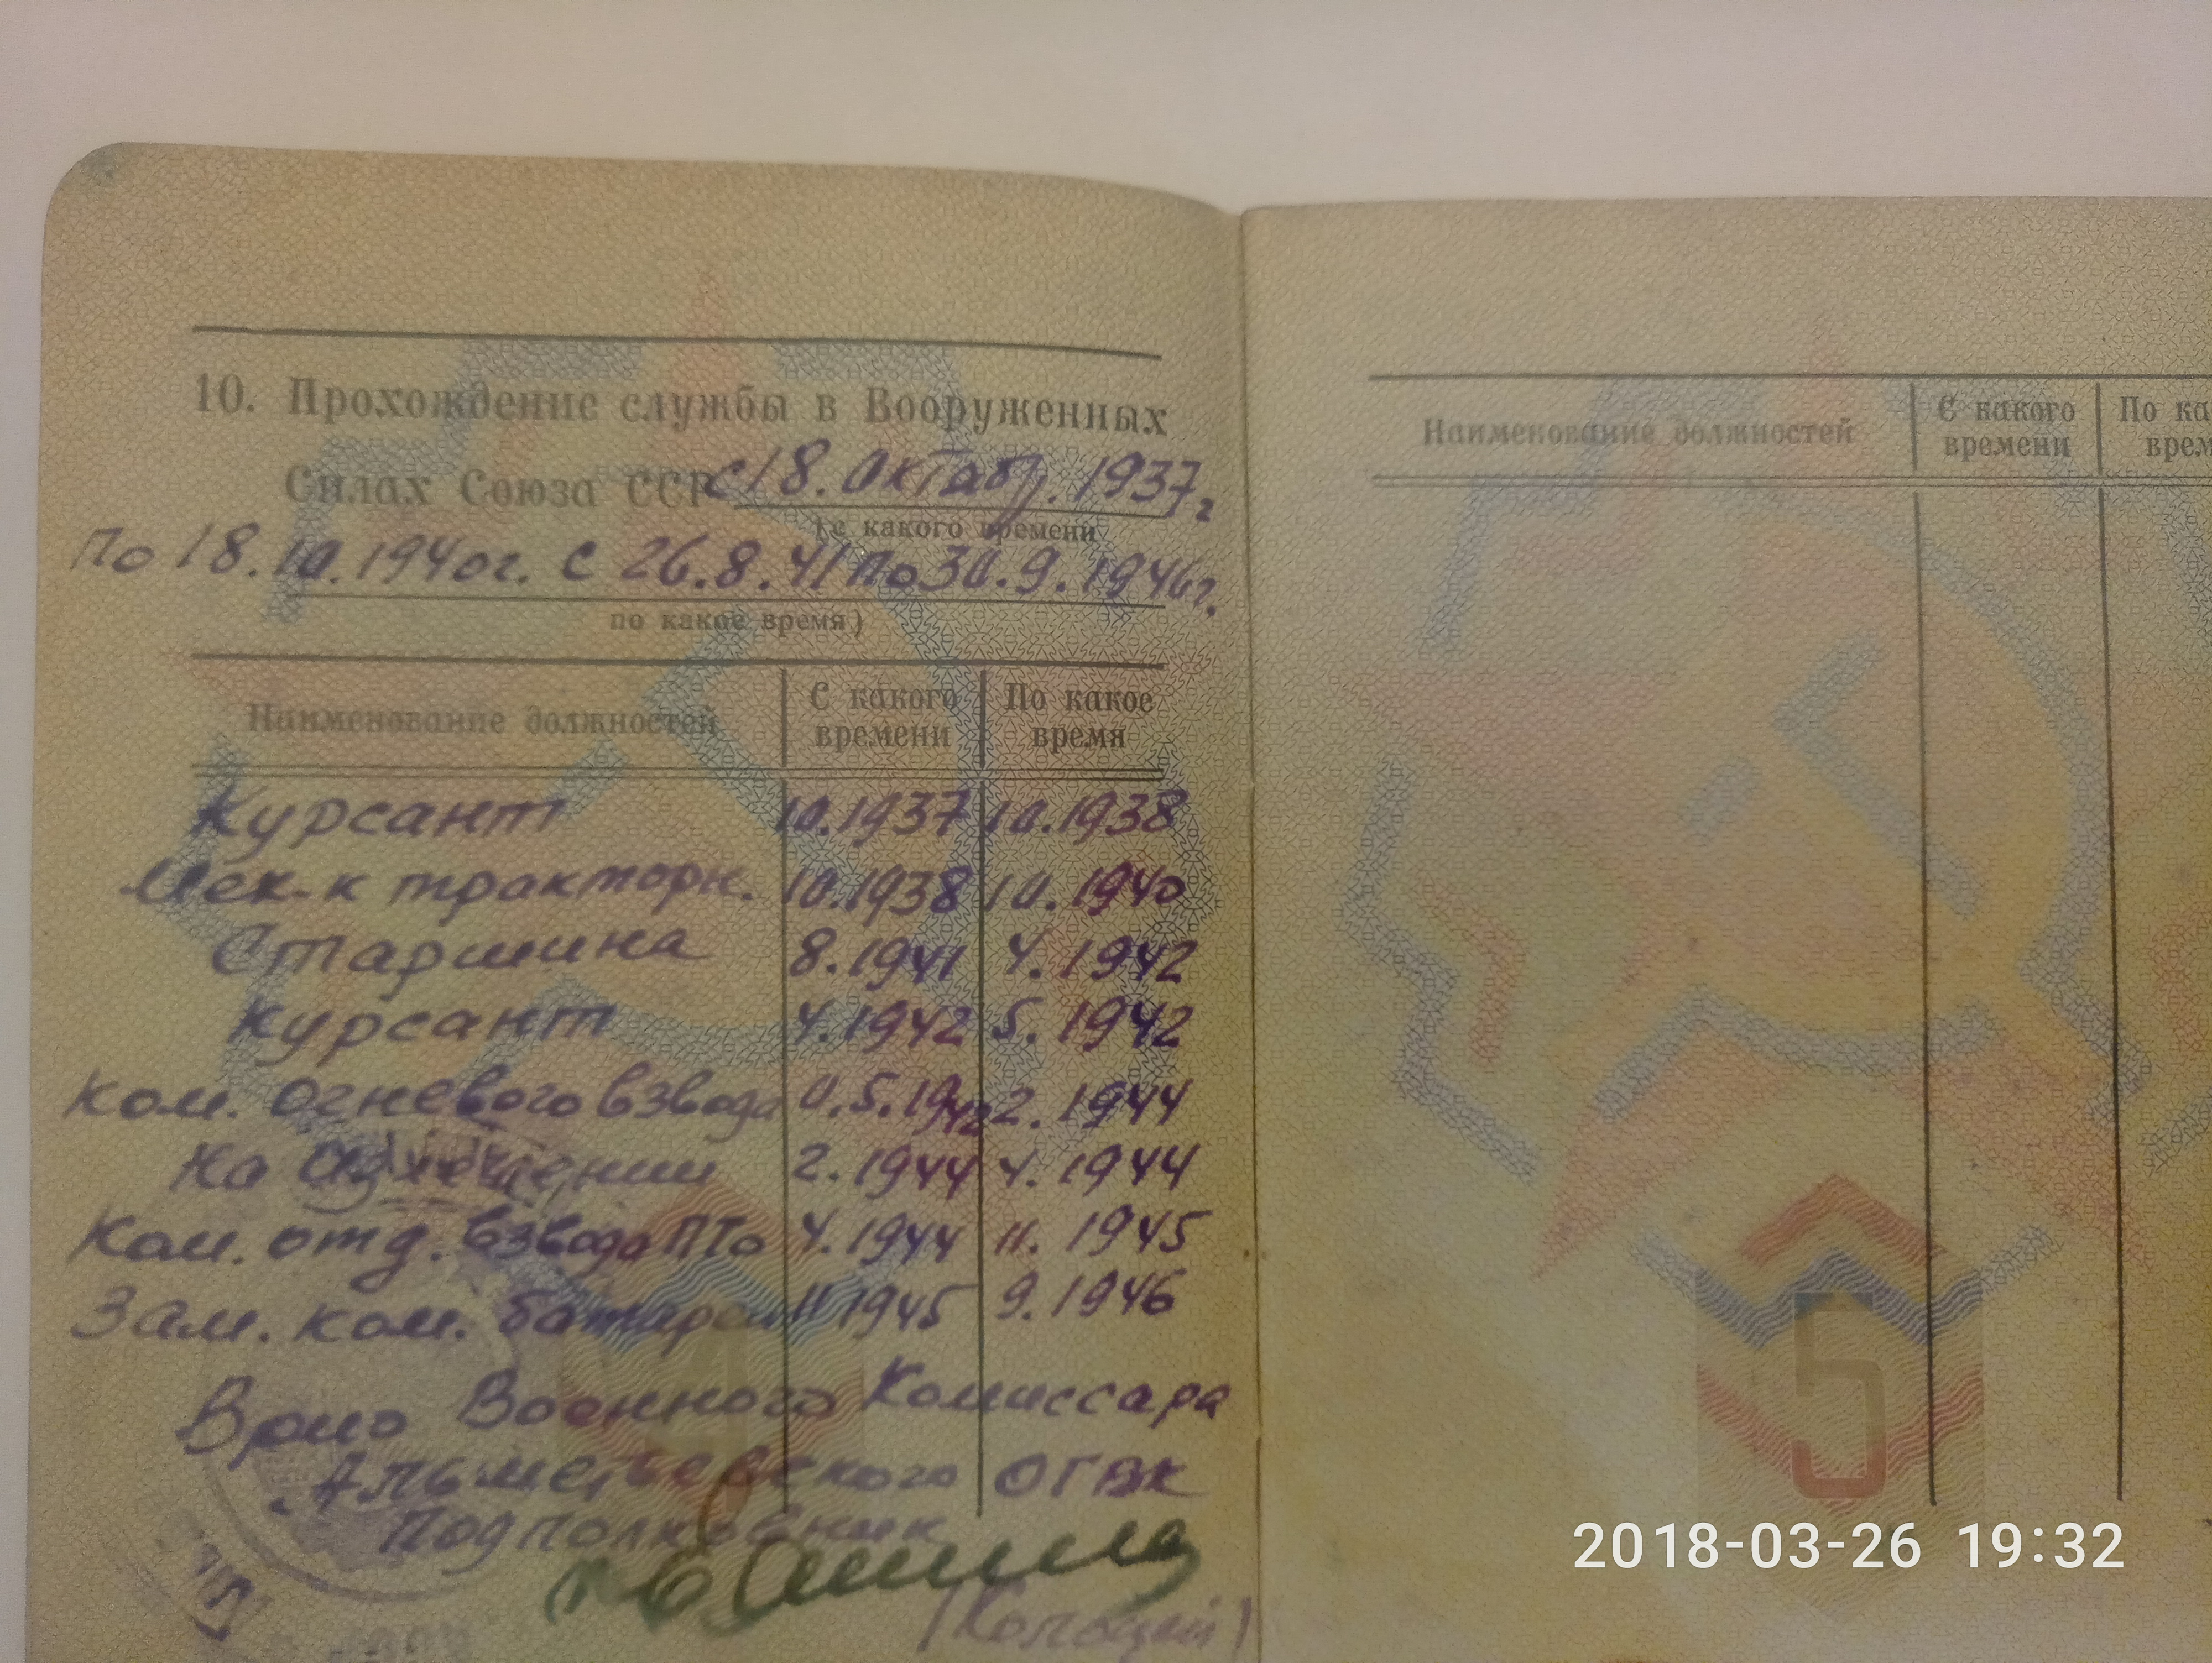 10. Прохождение службы в Вооруженных
Силах Союза ССР с 18. Октябр. 1937г
(с какого времени
По 18.10.1940г. с 26.8.41 по 30.9.1946г.
по какое время)
Наименование должностей С какого времени По какое время
Курсант 10.1937 10.1938
Мех-к тракторн. 10.1938 10.1940
Старшина 8.1941 4.1942
Курсант 4.1942 5.1942
Ком. огневого взвода 5.1942 2.1944
На 2.1944 4.1944
Ком. отд. взвода ПТО 4.1944 11.1945
Зам. ком. батареи 11 1945 9.1946
Врио Военного Комиссара
Альметьевского ОГВК
Подполковник
4
Наименование должностей С какого времени По ка врем
5
2018-03-26 19:32